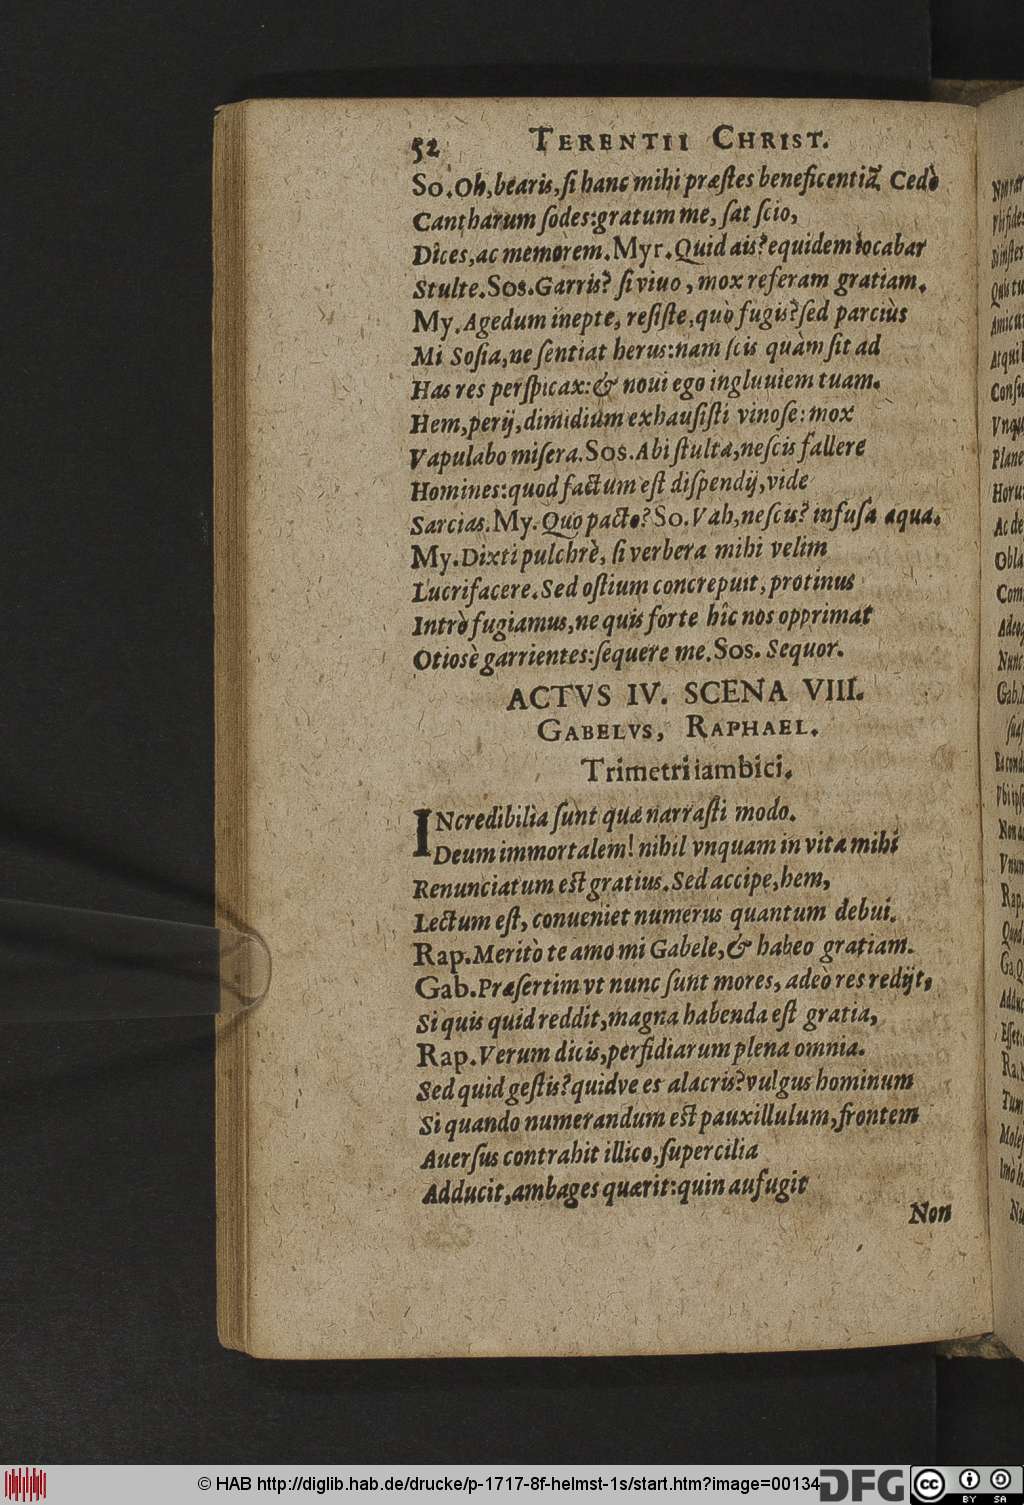 52 TERENTII CHRIST.
So. Oh, bearis, ſi hanc mihi præſtes beneficentiā. Cedò
Cantharum ſodes: gratum me, ſat ſcio,
Dices, ac memorem. Myr. Quid ais? equidem iocabar
Stulte. Sos. Garris? ſi viuo, mox referam gratiam.
My. Agedum inepte, reſiſte, quò fugis? ſed parciùs
Mi Soſia, ne ſentiat herus: nam ſcis quàm ſit ad
Has res perſpicax: & noui ego ingluuiem tuam.
Hem, perij, dimidium exhauſiſti vinoſe: mox
Vapulabo miſera. Sos. Abi ſtulta, neſcis fallere
Homines: quod factum eſt diſpendij, vide
Sarcias. My. Quo pacto? So. Vah, neſcis? infuſa aqua.
My. Dixti pulchrè, ſi verbera mihi velim
Lucrifacere. Sed oſtium concrepuit, protinus
Intrò fugiamus, ne quis forte hîc nos opprimat
Otiosè garrientes: ſequere me. Sos. Sequor.
ACTVS IV. SCENA VIII.
GABELVS, RAPHAEL.
Trimetri iambici.
INcredibilia ſunt quæ narraſti modo.
Deum immortalem! nihil vnquam in vita mihi
Renunciatum eſt gratius. Sed accipe, hem,
Lectum eſt, conueniet numerus quantum debui.
Rap. Meritò te amo mi Gabele, & habeo gratiam.
Gab. Præſertim vt nunc ſunt mores, adeò res redijt,
Si quis quid reddit, magna habenda eſt gratia,
Rap. Verum dicis, perfidiarum plena omnia.
Sed quid geſtis? quidve es alacris? vulgus hominum
Si quando numerandum eſt pauxillulum, frontem
Auerſus contrahit illico, ſupercilia
Adducit, ambages quærit: quin aufugit
Non
© HAB http://diglib.hab.de/drucke/p-1717-8f-helmst-1s/start.htm?image=00134
DFG
cc BY SA